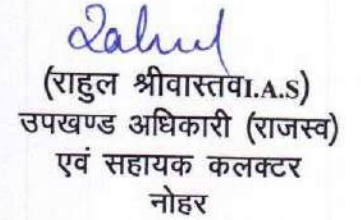 Rahul
(राहुल श्रीवास्तवI.A.S)
उपखण्ड अधिकारी (राजस्व)
एवं सहायक कलक्टर
नोहर